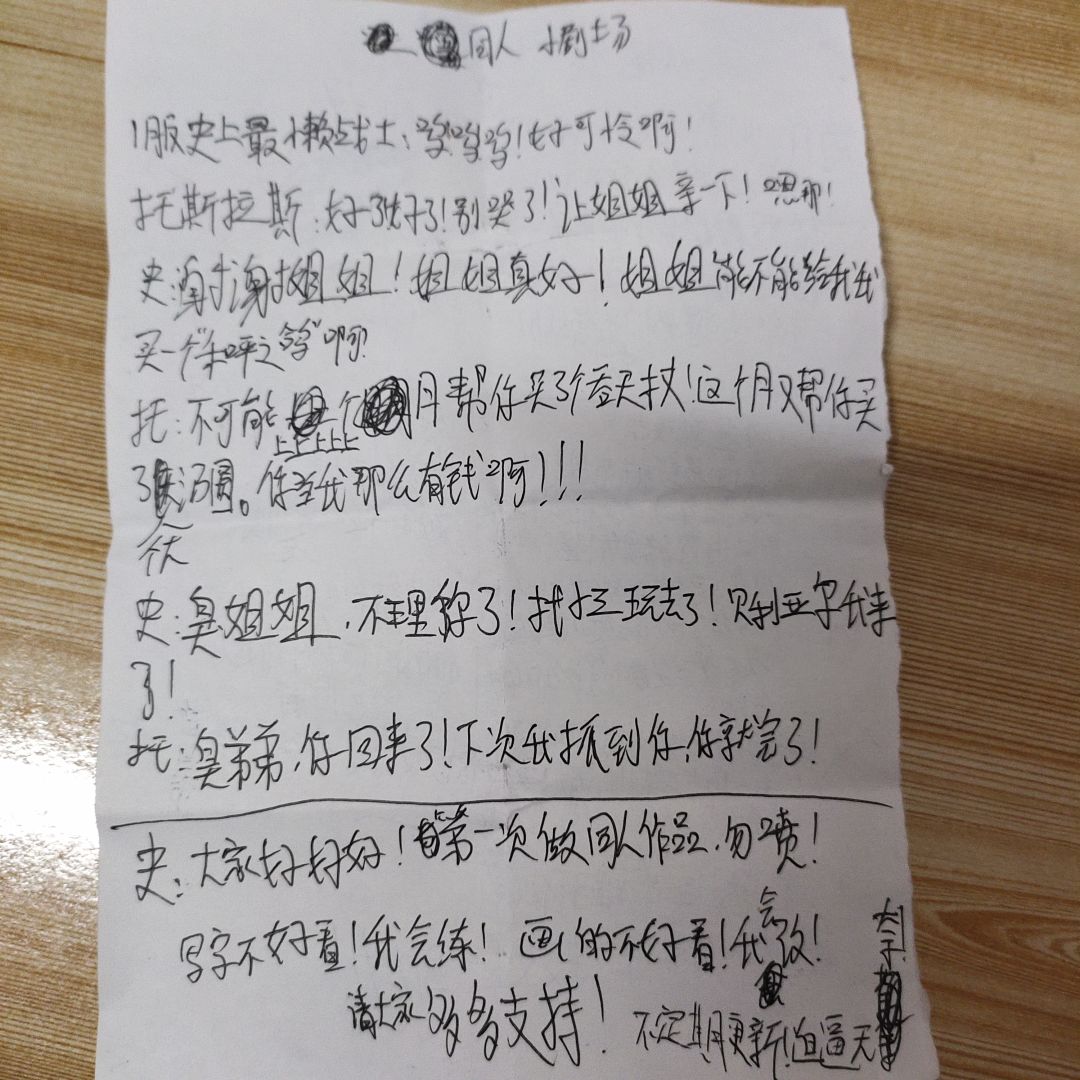 同人 小剧场
1服史上最懒战士：呜呜呜！好可怜啊！
托斯拉斯：好了好了！别哭了！让姐姐亲一下！嗯那！
史：谢谢姐姐！姐姐真好！姐姐能不能给我我
买一个"呼之翁"啊？
托：不可能 上个月帮你买了个吞天杖！这个月又帮你买
了汤圆。你当我那么有钱啊！！！
史：臭姐姐，不理你了！找小三玩去了！贝利亚尔我来
了！
托：臭弟弟，你回来了！下次我抓到你，你就完了！
史：大家好好好！第一次做同人作品，勿喷！
写字不好看！我会练！画的不好看！我会改！
请大家多多支持！
不定期更新！